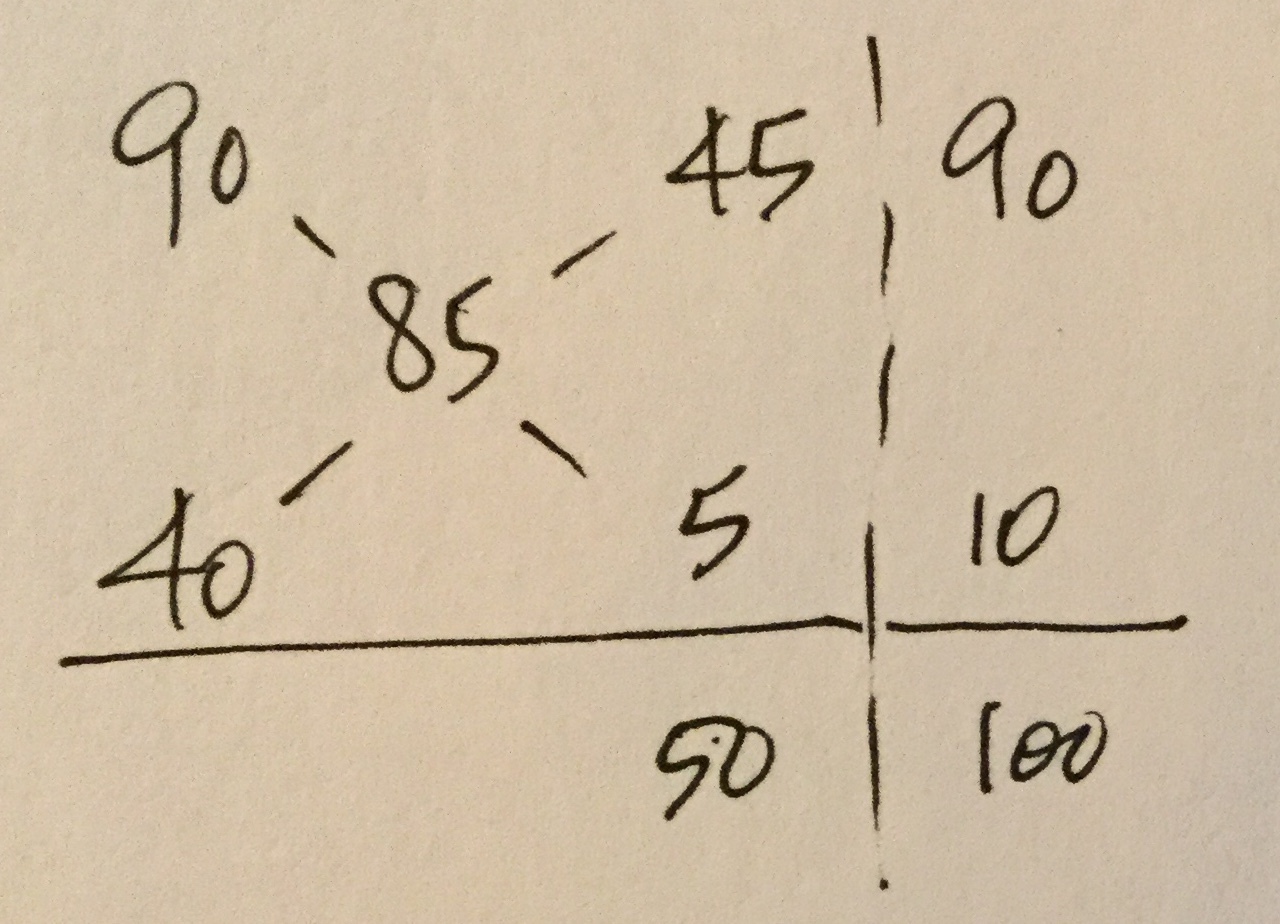 90 45 90
85
40 5 10
50 100